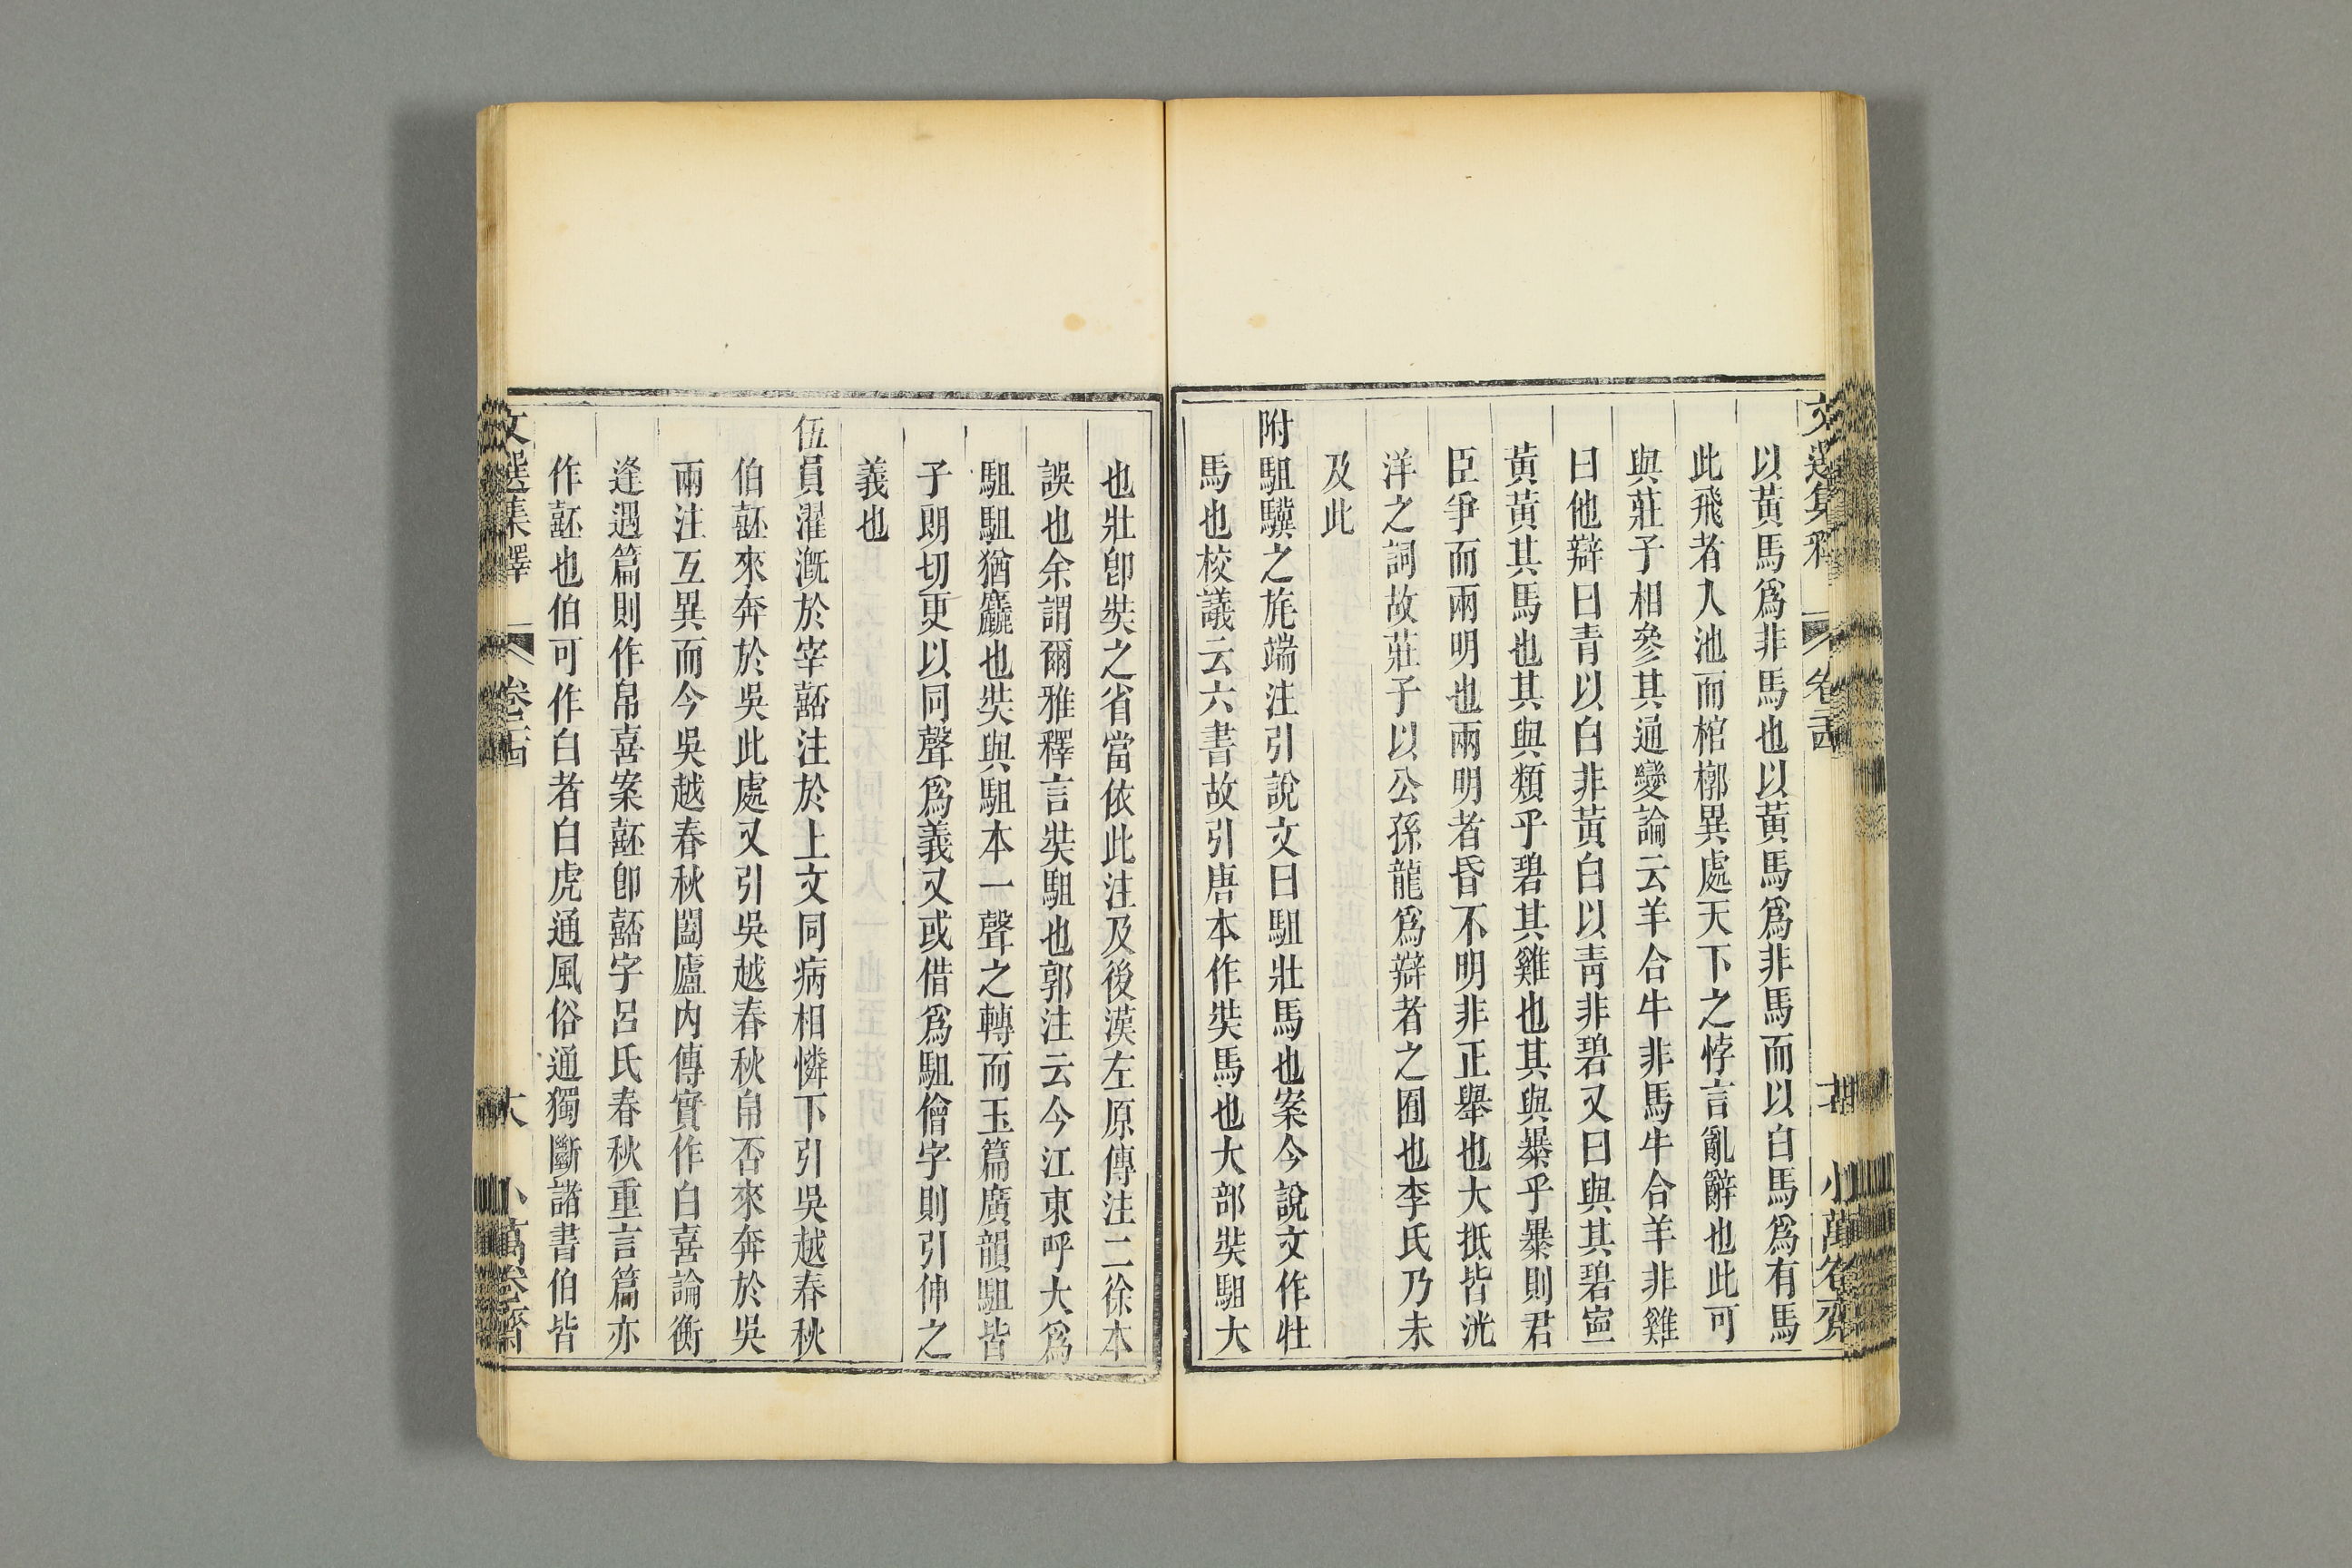 文選集釋 卷二十四 小萬卷齋
以黃馬爲非馬也以黃馬爲非馬而以白馬爲有馬
此飛者入池而棺槨異處天下之悖言亂辭也此可
與莊子相參其通變論云羊合牛非馬牛合羊非雞
曰他辯曰青以白非黃白以青非碧又曰與其碧寧
黃黃其馬也其與類乎碧其雞也其與暴乎暴則君
臣爭而兩明也兩明者昏不明非正舉也大抵皆洸
洋之詞故莊子以公孫龍爲辯者之囿也李氏乃未
及此
附駔驥之旄端注引說文曰駔壯馬也案今說文作壯
馬也校議云六書故引唐本作奘馬也大部奘駔大
也壯卽奘之省當依此注及後漢左原傳注二徐本
誤也余謂爾雅釋言奘駔也郭注云今江東呼大爲
駔駔猶麤也奘與駔本一聲之轉而玉篇廣韻駔皆
子朗切更以同聲爲義又或借爲駔儈字則引伸之
義也
伍員濯漑於宰嚭注於上文同病相憐下引吳越春秋
伯嚭來奔於吳此處又引吳越春秋帛否來奔於吳
兩注互異而今吳越春秋闔廬內傳實作白喜論衡
逢遇篇則作帛喜案嚭卽嚭字呂氏春秋重言篇亦
作嚭也伯可作白者白虎通風俗通獨斷諸書伯皆
文選集釋 卷二十四 小萬卷齋